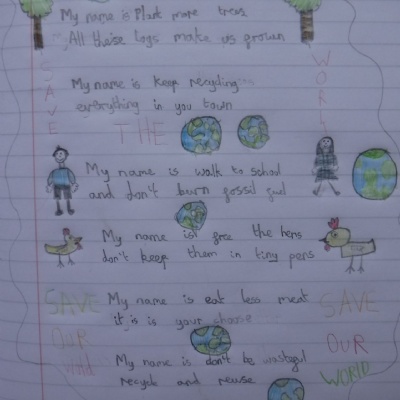 My name is Plant more trees
All these logs make us groan
My name is keep recycling
everything in you town
SAVE
THE
WORL
My name is walk to school
and don't burn fossil fuel
My name is free the hens
don't keep them in tiny pens
SAVE
My name is eat less meat
it is is your choose
SAVE
OUR
OUR
My name is don't be wasteful
recycle and reuse
WORLD